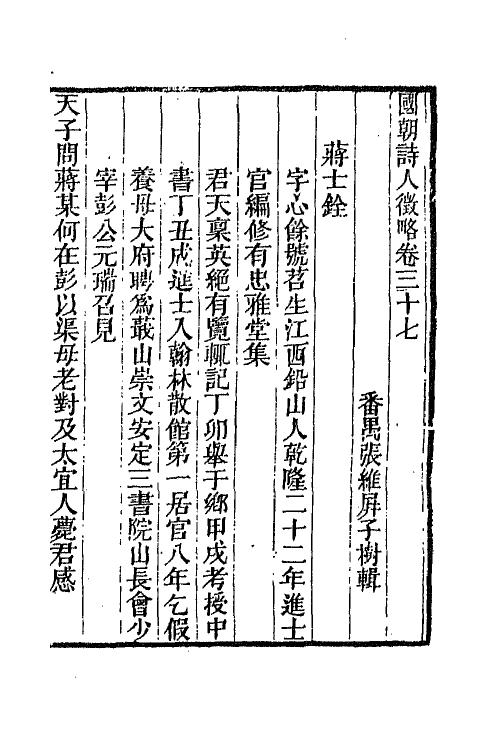 國朝詩人徵略卷三十七
番禺張維屏子樹輯
蔣士銓
字心餘號苕生江西鉛山人乾隆二十二年進士
官編修有忠雅堂集
君天稟英絕有覽輒記丁卯舉于鄉甲戌考授中
書丁丑成進士入翰林散館第一居官八年乞假
養母大府聘爲蕺山崇文安定三書院山長會少
宰彭公元瑞召見
天子問蔣某何在彭以渠母老對及太宜人薨君感